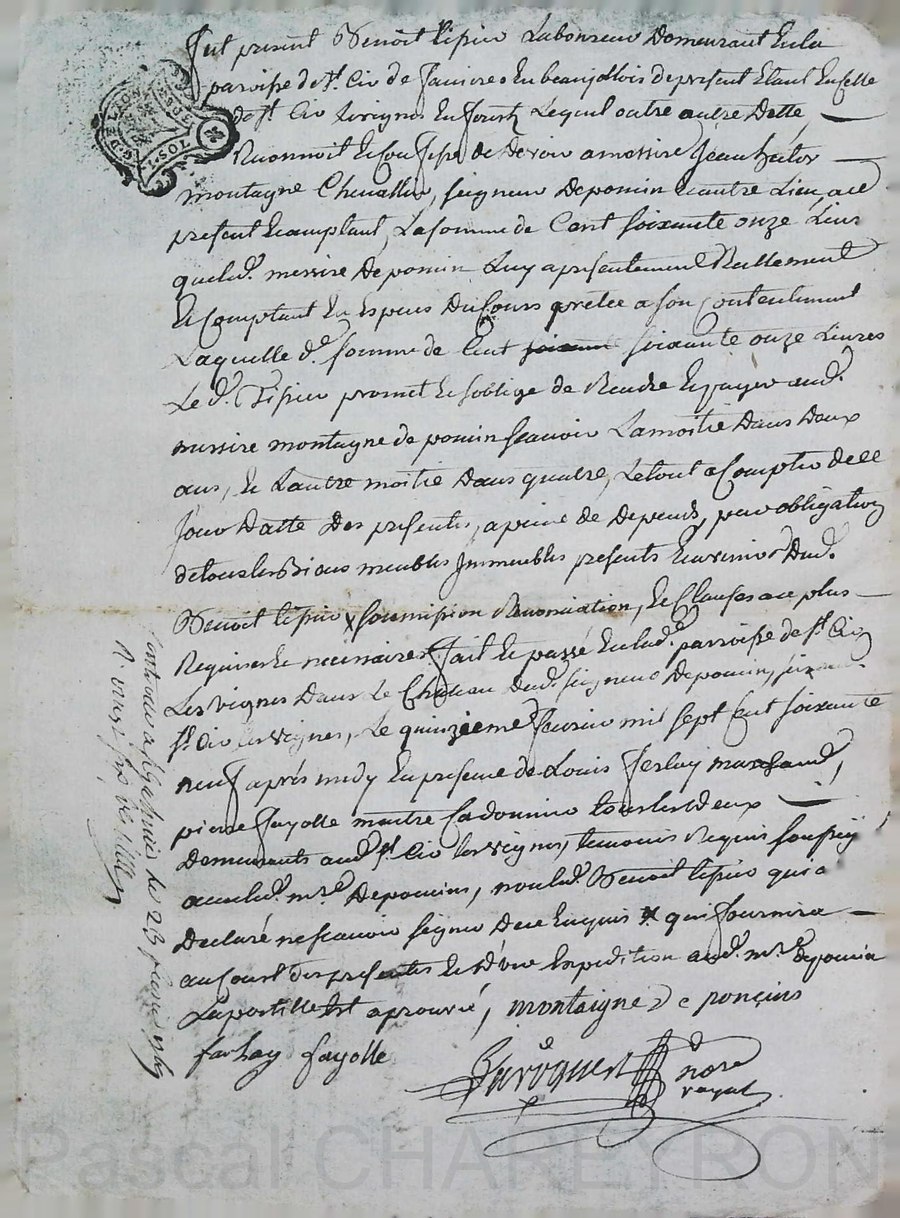 fut present Benoit Tipier Laboureur Demeurant En la
paroisse de St. Cir de favieres En beaujollois de present Etant En Celle
de St. Cir les vignes En forest, Lequel outre autre Dette
Reconnoit Et Confesse de devoir a messire Jean hector
montagne Chevallier, seigneur De poncin Et autre Lieu, ace
present Et acceptant, La somme de Cent soixante onze Livres
que led. messire De poncin Luy a presentement Reellement
Et Comptant En Especes Du Cours prettée a son Contentement
Laquelle de. somme de Cent soixante onze Livres
Le d. Tipier promet Et soblige de Rendre Et payer aud.
messire montagne de poncin scavoir La moitie Dans Deux
ans, Et Lautre moitie Dans quatre, Le tout a Compter de ce
Jour Datte Des presentes, a peine de Depends, par obligation
de tous les Biens meubles Immeubles presents Et avenir Dud.
Benoit Tipier soumission Renonciation, Et Clauses ace plus
Requises Et necessaires fait Et passé En lad. parroisse de St. Cir
Les vignes Dans Le Chateau Dud. seigneur De poncin,
St. Cir les vignes, Le quinzieme fevrier mil sept Cent soixante
neuf après midy En presence de Louis marchand,
pierre fayolle maitre Cadonnier tous les deux
Demeurants aud. St. Cir les vignes, temoins Requis soussignés
avec led. mre. De poncins, non led. Benoit Tipier qui a
Declaré ne scavoir signer De ce Enquis qui fournira
au Cout des presentes Et d'une Expedition aud. mre. De poncin
Lapostille Est aprouvée, montaigne De ponçins
fayolle
nore
royal
Controlé a le 23 fevrier 1769
R.
DE LYON